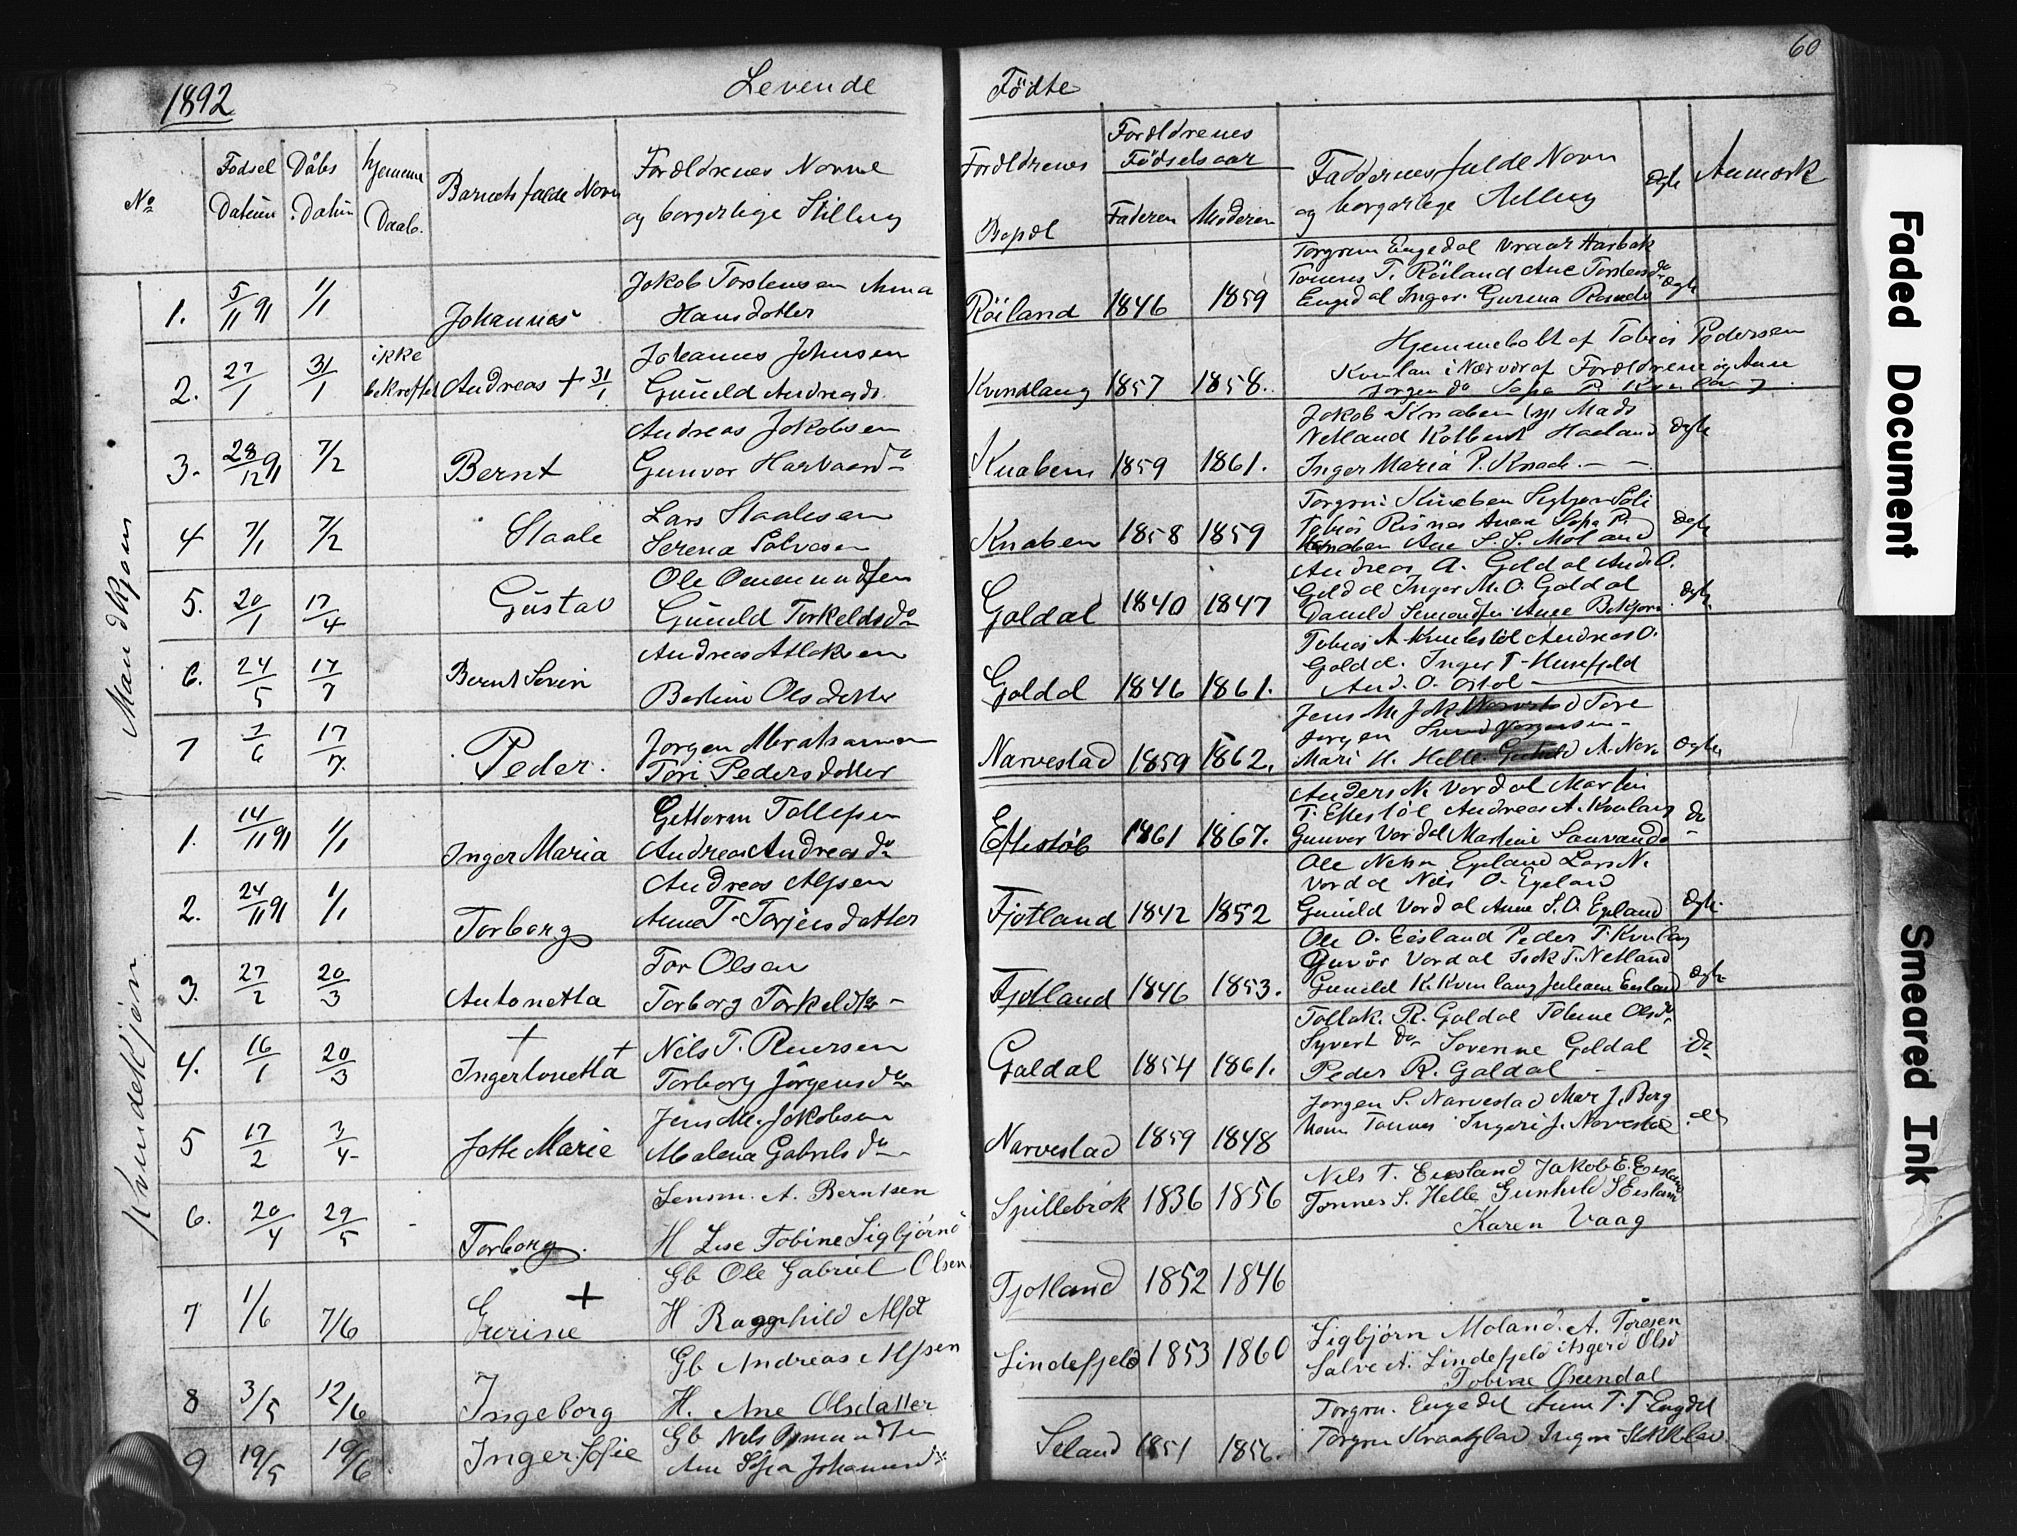 1892 Levende Födte 60
No Fodsel Datum Dåbs Datum hjemme Daab. Barnets fulde Navn Forældrenes Navne og borgerlige Stilling Forældrenes Bopæl Forældrenes Fødselsaar Faderen Moderen Faddernes fulde Navn og borgerlige Stilling Ægte Anmærk
Mandkjøn
1. 5/11 91 1/1 Johannes Jakob Torstensen Anna
Hansdatter Röiland 1846 1859 Torgrim Engedal
Tönnes T. Röiland Ane Torstensd
Engedal Inger Ægte
2. 27/1 31/1 ikke bekræftet Andreas + 31/1 Johannes Johnsen
Gunild Andreasd. Kvindlaug 1857 1858. Hjemmedøbt af Tobias Pedersen
Kvinlau i Nærvær af Forældrene og Anne
3. 28/12 91 7/2 Bernt Andreas Jakobsen
Gunvor Harvaardda Knaben 1859 1861. Jakob Knaben og Mads
Netland Kolbent Haeland Ægte
Inger Maria P. Knab.
4 7/1 7/2 Staale Lars Staalesen
Serena Salvesen Knaben 1858 1859 Torgrim Knaben Sigbjørn Soli
Tobias Risnes Anna Sofa P. Ægte
Knaben Ane S. S. Moland
5. 20/1 17/4 Gustav Ole Omemundsen
Gunild Torkeldsda Galdal 1840 1847 Andreas A. Galdal And. O.
Galdal Inger M. O. Galdal Ægte
6. 24/5 17/7 Bernt Severin Andreas Atlaksen
Bertine Olsdatter Galdal 1846 1861. Tobias A. Andreas O.
Galdal. Inger T. Hunsfjeld
And. O.
7 7/6 17/7. Peder. Jørgen Abrahamsen
Tori Pedersdatter Narvestad 1859 1862. Jens M. Jak Tore
Jørgen
Mari H. Helle A. Narv. Ægte
Kvindekjøn
1. 14/11 91 1/1 Inger Maria Guttorm Tallefsen
Andrea Andreasda Eftestöl 1861 1867. Anders N. Vordal Martin
T. Eftestöl Andreas A. Kvinlaug do
Gunvor Vordal Martine
2. 24/11 91 1/1 Torborg Andreas Alfsen
Anne T. Torjusdatter Fjotland 1842 1852 Ole Nelsen Egeland Lars N.
Vordal Nils O. Egeland
Gunild Vordal Anne S. O. Egeland Ægte.
3. 27/2 20/3 Antonetta Tor Olsen
Torborg Torkelds Fjotland 1846 1853. Ole O. Eesland Peder T. Kvinlaug
Gunvör Vordal T. Netland
Gunild K. Kvinlaug Eesland Ægte
4. 16/1 20/3 + Ingertonetta + Nils T. Reiersen
Torborg Jörgensda Galdal 1854 1861. Tallak. R. Galdal Tobine Olsda
Syvert do Sovenne Galdal do
Peder R. Galdal
5 17/2 3/4 Jette Marie Jens M. Jakobsen
Malena Gabrielsda Narvestad 1859 1848 Jørgen S. Narvestad Mar J. Berg
Tønnes Ingeri J. Narvestad do
6. 20/4 29/5 Torborg. Lensm. A. Berntsen
H Lise Tobine Sigbjörnd Spillebrok 1836 1856 Nils T. Eiesland Jakob E. Eiesland
Tønnes S. Helle Gunhild S Eiesland
Karen Vaag
7 1/6 7/6 Gurine + Gb Ole Gabriel Olsen
H Ragnhild Alfsd Fjotland 1852 1846
8 3/5 12/6 Ingeborg Gb Andreas Alfsen
H. Ane Olsdatter Lindefjeld 1853 1860 Sigbjörn Moland. A. Töresen
Salve A. Lindefjeld Asgerd Olsd
Tobine Omdal
9 19/5 19/6 Inger. Sofie Gb Nils Osmundsen
Ane Sofia Johannesd Seland 1851 1856. Torgrim Engedal Anne T. T. Engedal
Faded Document
Smeared Ink